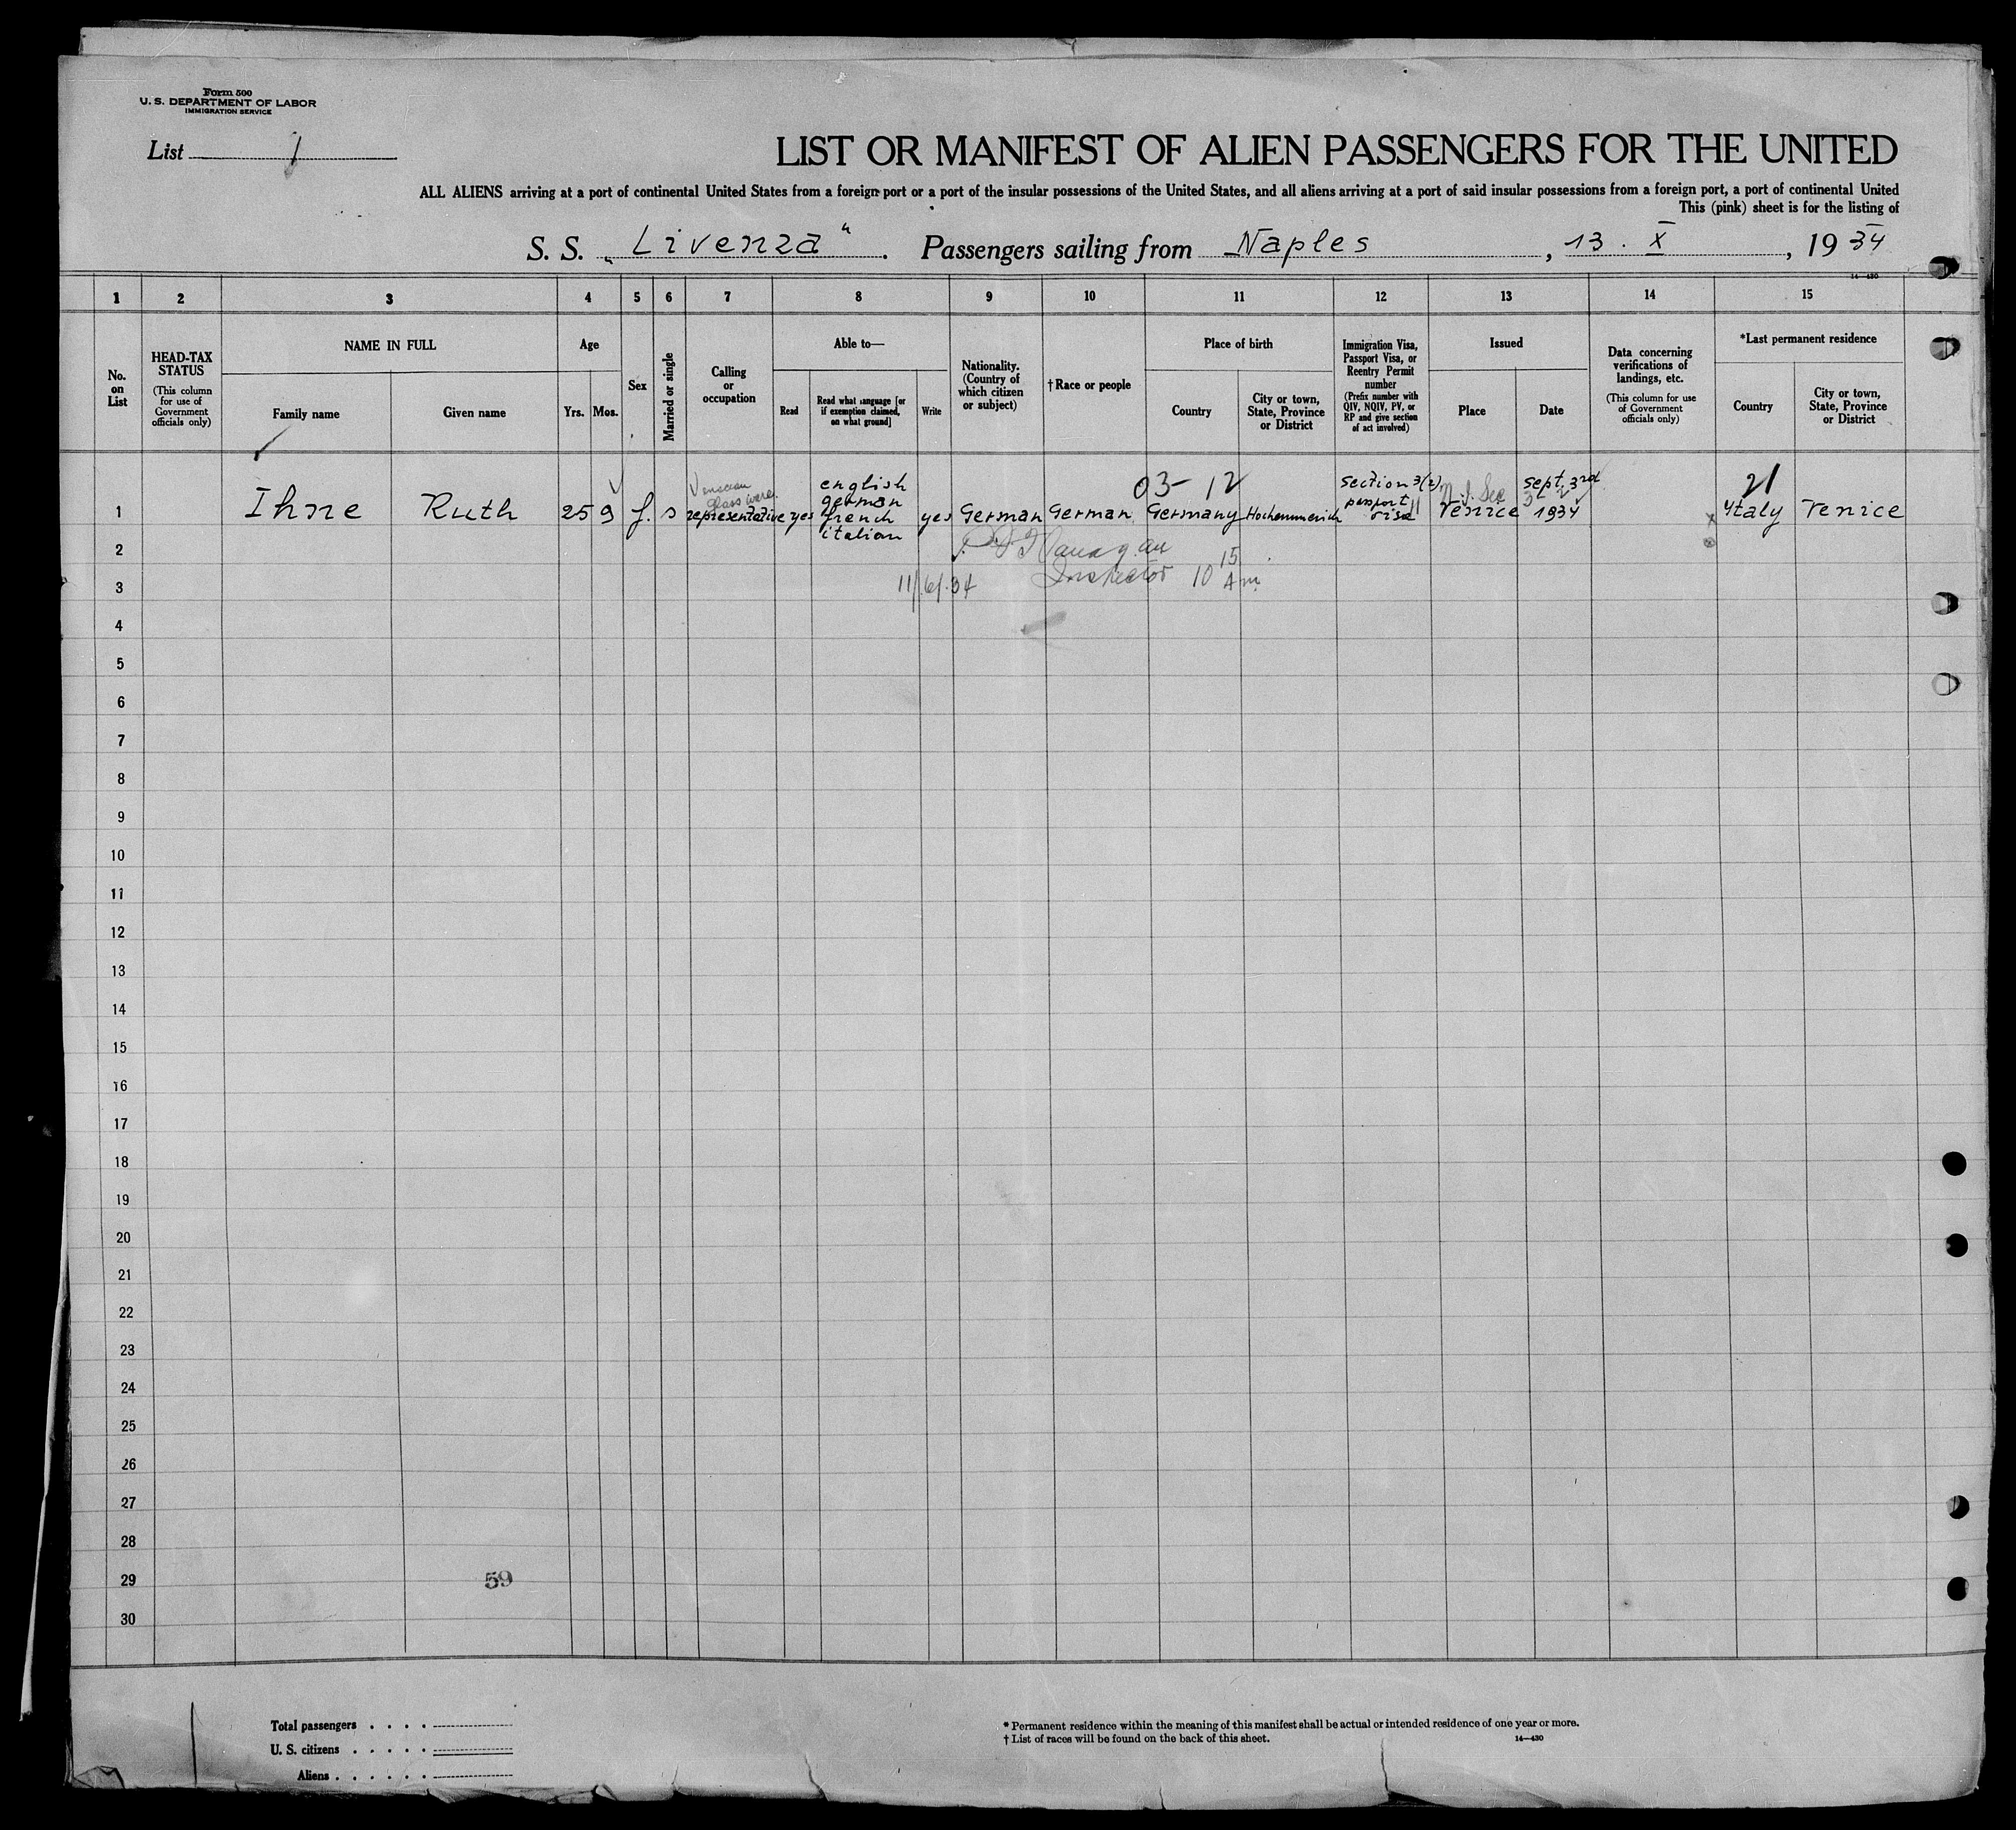 Form 500
U. S. DEPARTMENT OF LABOR
IMMIGRATION SERVICE
List 1
LIST OR MANIFEST OF ALIEN PASSENGERS FOR THE UNITED
ALL ALIENS arriving at a port of continental United States from a foreign port or a port of the insular possessions of the United States, and all aliens arriving at a port of said insular possessions from a foreign port, a port of continental United
This (pink) sheet is for the listing of
S. S. „Livenza“. Passengers sailing from Naples, 13. X, 1934
14—430
1 2 3 4 5 6 7 8 9 10 11 12 13 14 15
No. on List
HEAD-TAX STATUS
(This column for use of Government officials only)
NAME IN FULL
Family name
Given name
Age
Yrs.
Mos.
Sex
Married or single
Calling or occupation
Able to—
Read
Read what language [or if exemption claimed, on what ground]
Write
Nationality. (Country of which citizen or subject)
†Race or people
Place of birth
Country
City or town, State, Province or District
Immigration Visa, Passport Visa, or Reentry Permit number
(Prefix number with QIV, NQIV, PV, or RP and give section of act involved)
Issued
Place
Date
Data concerning verifications of landings, etc.
(This column for use of Government officials only)
*Last permanent residence
Country
City or town, State, Province or District
03- 12
21
1 Ihne Ruth 25 9 f. s Venecian glass ware representative yes english german french italian yes German German Germany Hochemmerich Section 3(2) passport visa 11 Venice Sept. 3rd 1934 Ytaly Venice
2
Inspector 10 15 Am.
11/6/34
3
4
5
6
7
8
9
10
11
12
13
14
15
16
17
18
19
20
21
22
23
24
25
26
27
28
29
59
30
Total passengers
U. S. citizens
Aliens
* Permanent residence within the meaning of this manifest shall be actual or intended residence of one year or more.
† List of races will be found on the back of this sheet.
14—430